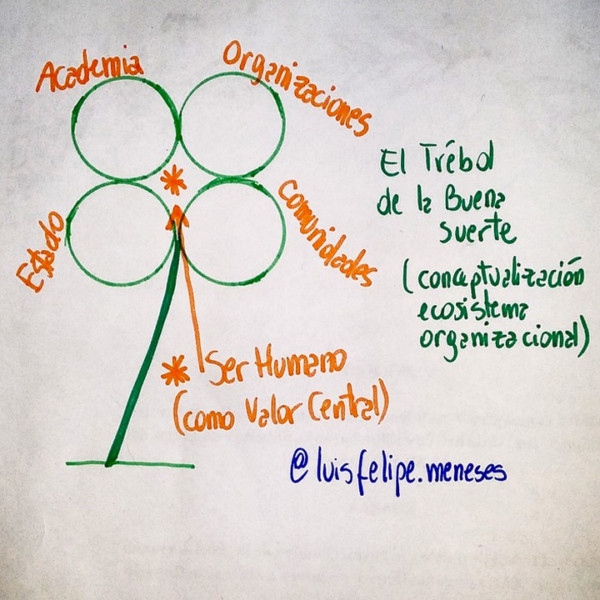 Academia
Organizaciones
Estado
Comunidades
*
El Trébol
de la Buena
suerte
(conceptualización
ecosistema
organizacional)
* Ser Humano
(como Valor Central)
@luisfelipe.meneses